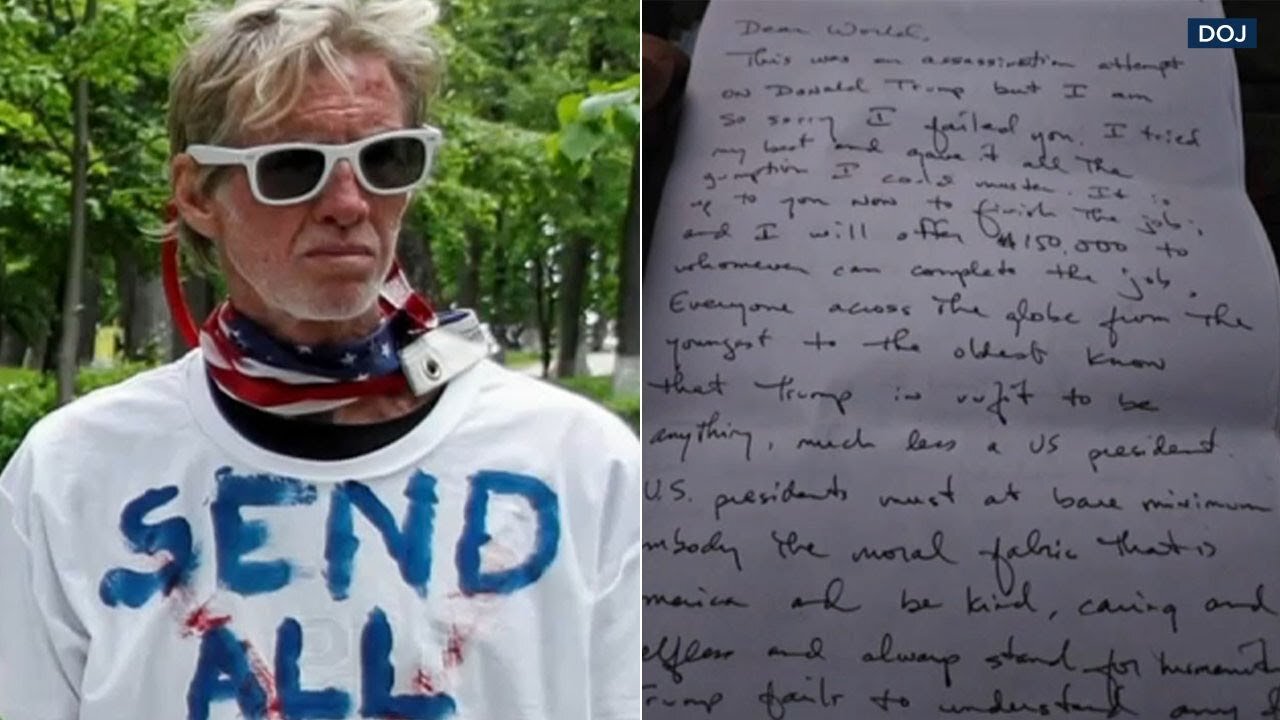 SEND
ALL
DOJ
Dear World,
This was an assassination attempt
on Donald Trump but I am
so sorry I failed you. I tried
my best and gave it all the
gumption I could muster. It is
up to you now to finish the job;
and I will offer $150,000 to
whomever can complete the job.
Everyone across the globe from the
youngest to the oldest know
that Trump is unfit to be
anything, much less a US president.
U.S. presidents must at bare minimum
mbody the moral fabric that is
merica and be kind, caring and
elfless and always stand for humanit
Trump fails to understand any